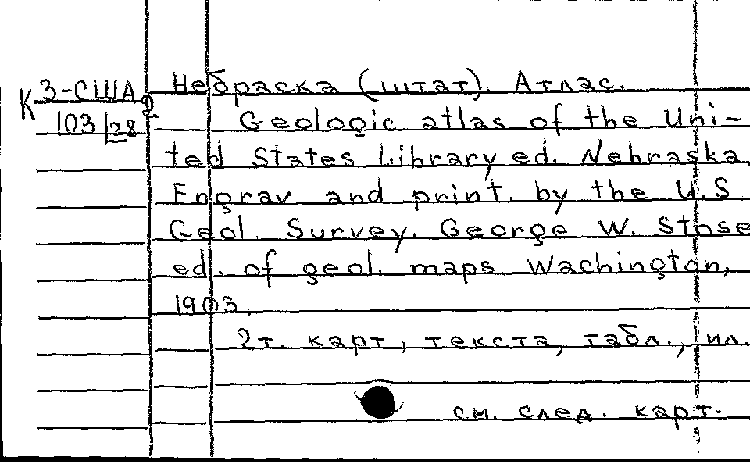 К 3-США
103/28
Небраска (штат). Атлас.
Geologic atlas of the Uni-
ted States Library ed. Nebraska.
Engrav and print. by the U.S
Geol. Survey. George W. Stose
ed. of geol. maps Wachington,
1903.
2т. карт, текста, табл., ил.
см. след. карт.